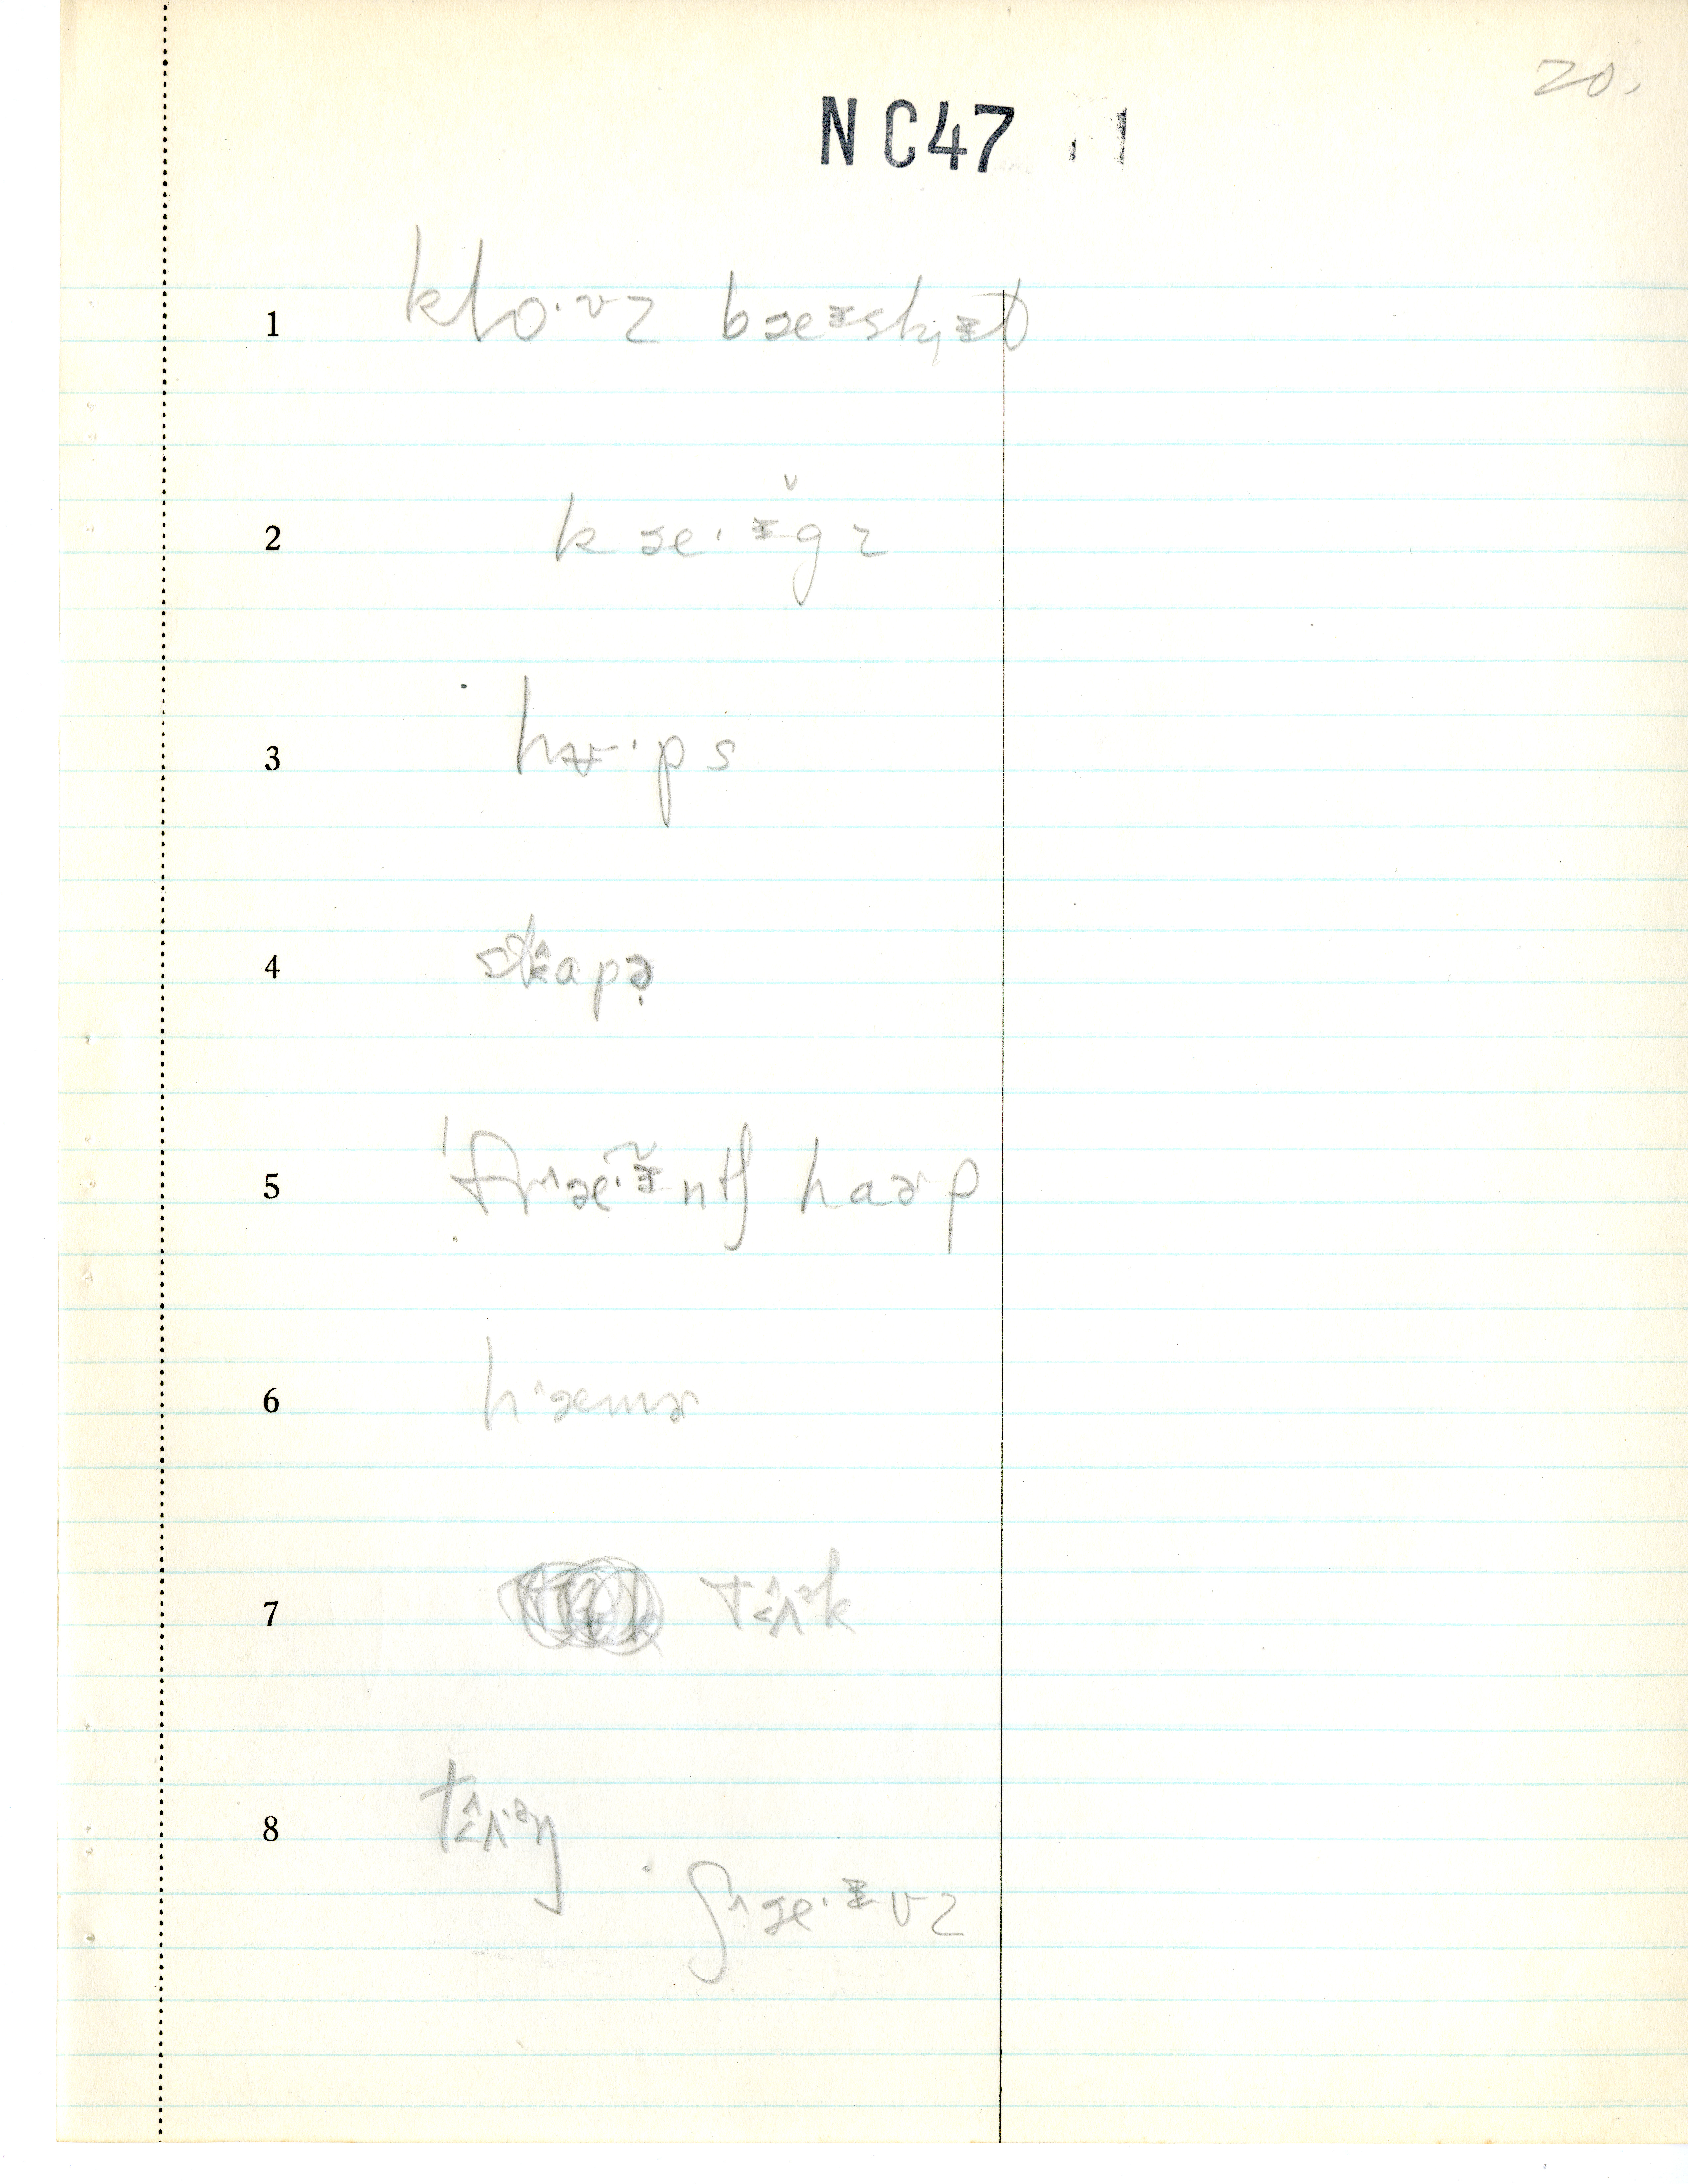 20.
NC47
1 klo·ᵛz bæᵻskᵻt
2 k æ·ᵻ̆g z
3 hʊ·ps
4 sk̂apə
5 'fr^æ·ᵻ̆ntʃ haɚp
6 h^æmɚ
7 tɛ̂ʌᵊk
8 tɛ̂ʌ·ᵊŋ
ʃ^æ·ᵻvz